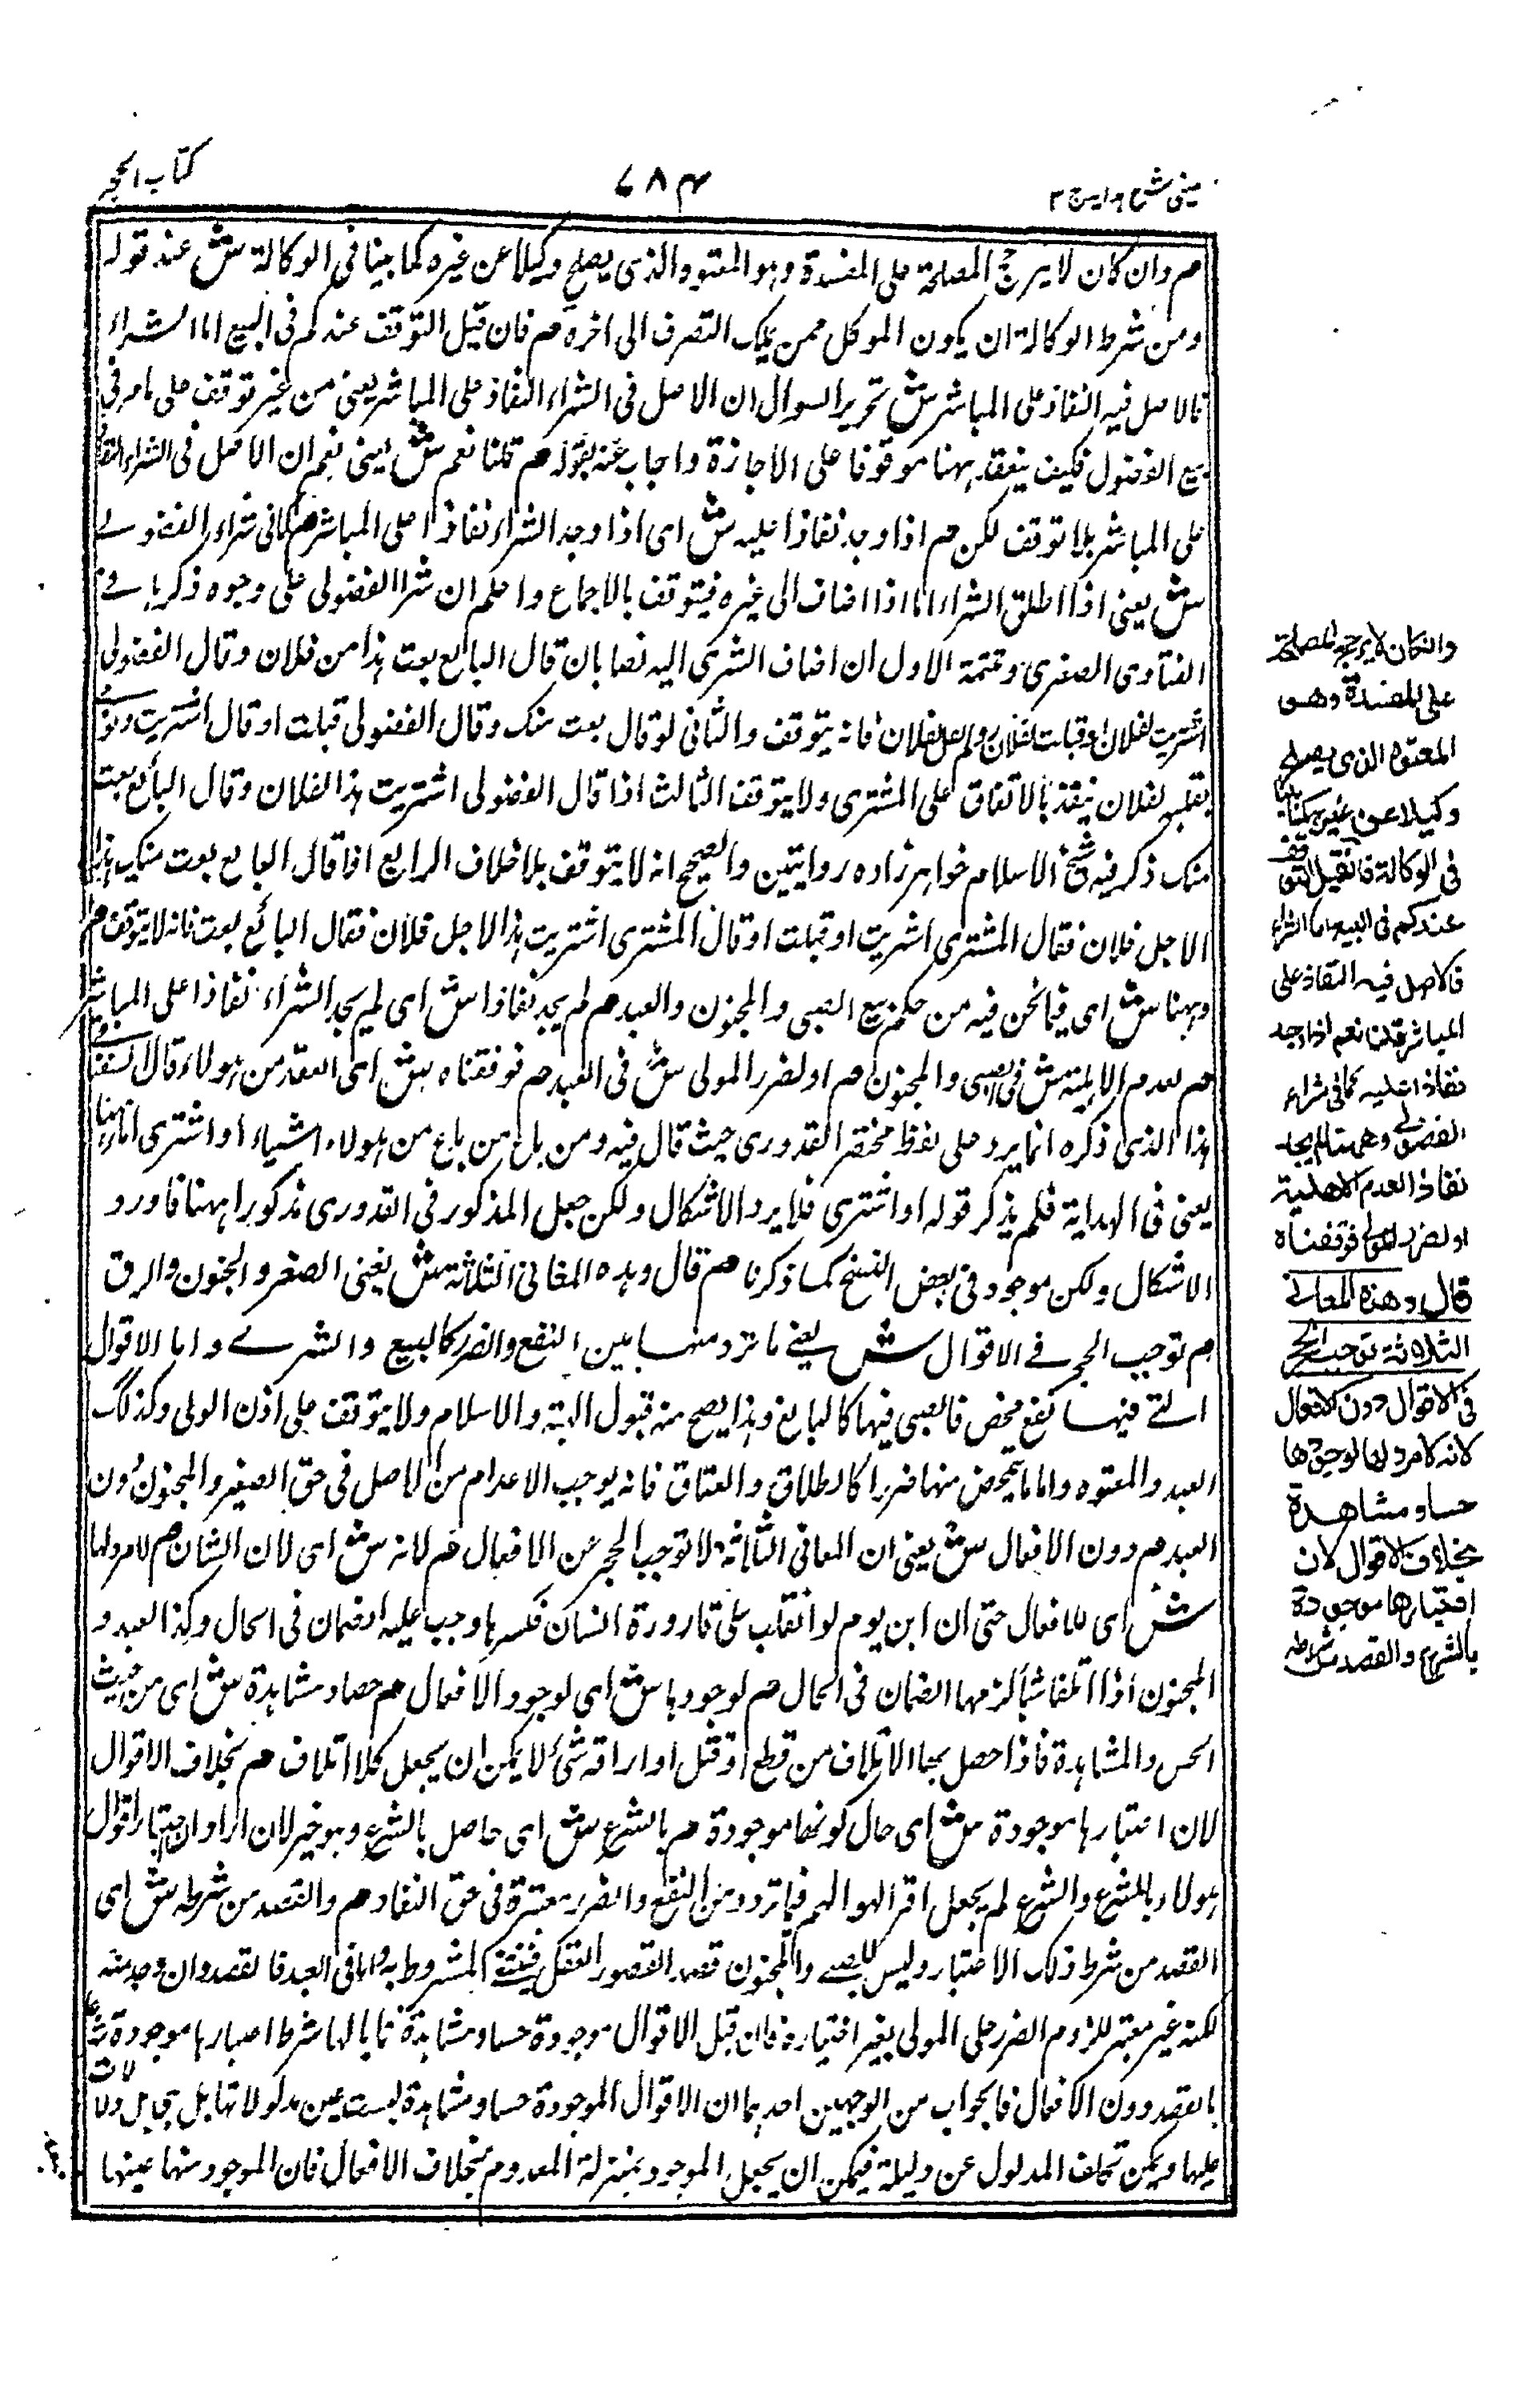 عینی شرح ہدایہ ج ۳
۷۸۴
کتاب الحجر
م وان کان لا یرجح المصلحة علی المفسدة وہو المعتوہ الذی یصلح وکیلا عن غیرہ کما بینا فی الوکالة ش عند قولہ
ومن شرط الوکالة ان یکون الموکل ممن یملک التصرف الی اخرہ م فان قیل التوقف عندکم فی البیع اما الشراء
فالاصل فیہ النفاذ علی المباشر ش تحریر السوال ان الاصل فی الشراء النفاذ علی المباشر یعنی من غیر توقف علی ما مر فی
بیع الفضولی فکیف ینعقد ہہنا موقوفا علی الاجازة واجاب عنہ بقولہ م قلنا نعم ش یعنی نعم ان الاصل فی الشراء النفاذ
علی المباشر بلا توقف لکن م اذا وجد نفاذا علیہ ش ای اذا وجد الشراء نفاذا علی المباشر م کما فی شراء الفضولے
ش یعنی اذا اطلق الشراء اما اذا اضاف الی غیرہ فیتوقف بالاجماع واعلم ان شرا الفضولی علی وجوہ ذکرہا فے
الفتاوی الصغری وتتمة الاول ان اضاف الشری الیہ نصا بان قال البایع بعت ہذا من فلان وقال الفضولی
اشتریت لفلان او قبلت لفلان فانہ یتوقف والثانی لو قال بعت منک وقال الفضولی قبلت او قال اشتریت ونوی
بقلبہ لفلان ینفذ بالاتفاق علی المشتری ولا یتوقف الثالث اذا قال الفضولی اشتریت ہذا لفلان وقال البایع بعت
منک ذکر فیہ شیخ الاسلام خواہر زادہ روایتین والصحیح انہ لا یتوقف بلا خلاف الرابع اذا قال البایع بعت منک ہذا
الاجل فلان فقال المشتری اشتریت او قبلت او قال المشتری اشتریت ہذا لاجل فلان فقال البائع بعت فانہ لا یتوقف م
وہہنا ش ای فیما نحن فیہ من حکم بیع الصبی والمجنون والعبد م لم یجد نفاذا ش ای لم یجد الشراء نفاذا علی المباشر
م لعدم الاہلیة ش فی الصبی والمجنون م او لضرر المولی ش فی العبد م فوقفناہ ش ای العقد من ہولاء قال
ہذا الذی ذکرہ انما یرد علی لفظ مختصر القدوری حیث قال فیہ ومن باع من ہولاء اشیاء او اشتری اما ہہنا
یعنی فی الہدایة فلم یذکر قولہ او اشتری فلا یرد الاشکال ولکن جعل المذکور فی القدوری مذکورا ہہنا فاورد
الاشکال ولکن موجود فی بعض النسخ کما ذکرنا م قال وہذہ المعانی الثلاثة ش یعنی الصغر والجنون والرق
م توجب الحجر فے الاقوال ش یعنے ما تردد منہا بین النفع والضرر کالبیع والشرے واما الاقوال
التے فیہا نفع محض فالصبی فیہا کالبالغ ولہذا یصح منہ قبول الہبة والاسلام ولا یتوقف علی اذن الولی وکذلک
العبد والمعتوہ واما ما یتمحض منہا ضررا کالطلاق والعتاق فانہ یوجب الاعدام من الاصل فی حق الصغیر والمجنون دون
العبد م دون الافعال ش یعنی ان المعانی الثلاثة لا توجب الحجر عن الافعال م لانہ ش ای لان الشان م لا مرد لہا
ش ای للافعال حتی ان ابن یوم لو انقلب علی قارورة انسان فکسرہا وجب علیہ الضمان فی الحال وکذا العبد و
المجنون اذا اتلفا شیأ لزمہا الضمان فی الحال م لوجودہا ش ای لوجود الافعال م حسا ومشاہدة ش ای من حیث
الحس والمشاہدة فاذا حصل بہا الاتلاف من قطع او قتل او اراقة شئ لا یمکن ان یجعل کلا اتلاف م بخلاف الاقوال
لان اعتبارہا موجودة ش ای حال کونہا موجودة م بالشرع ش ای حاصل بالشرع وہو خبر لان اراد ان اعتبار اقوال
ہولاء بالشرع والشرع لم یجعل اقوالہم فیما تردد من النفع والضرر معتبرة فی حق النفاذ م والقصد من شرطہ ش ای
القصد من شرط ذلک الاعتبار ولیس للصبے والمجنون قصد لقصور العقل فینتفے المشروط بہ واما فی العبد فالقصد وان وجد منہ
لکنہ غیر معتبر للزوم الضرر علی المولی بغیر اختیارہ فان قیل الاقوال موجودة حسا ومشاہدة فما بالہا شرط اعتبارہا موجودة شرعا
بالقصد دون الافعال فالجواب من الوجہین احدہما ان الاقوال الموجودة حسا ومشاہدة لیست عین مدلولاتہا بل ہی دلالات
علیہا ویمکن تخلف المدلول عن دلیلہ فیمکن ان یجعل الموجود بمنزلة المعدوم بخلاف الافعال فان الموجود منہا عینہا
وان کان لا یرجح المصلحة
علی المفسدة وهو
المعتوہ الذی یصلح
وکیلا عن غیرہ کما بینا
فی الوکالة فان قیل التوقف
عندکم فی البیع اما الشراء
فالاصل فیہ النفاذ علی
المباشر قلنا نعم اذا وجد
نفاذا علیہ کما فی شراء
الفضولی وههنا لم یجد
نفاذا لعدم الاهلیة
او لضرر المولی فوقفناہ
قال وهذہ المعانے
الثلاثة توجب الحجر
فی الاقوال دون الافعال
لانہ لا مرد لها لوجودها
حسا ومشاهدة
بخلاف الاقوال لان
اعتبارها موجودة
بالشرع والقصد من شرطہ